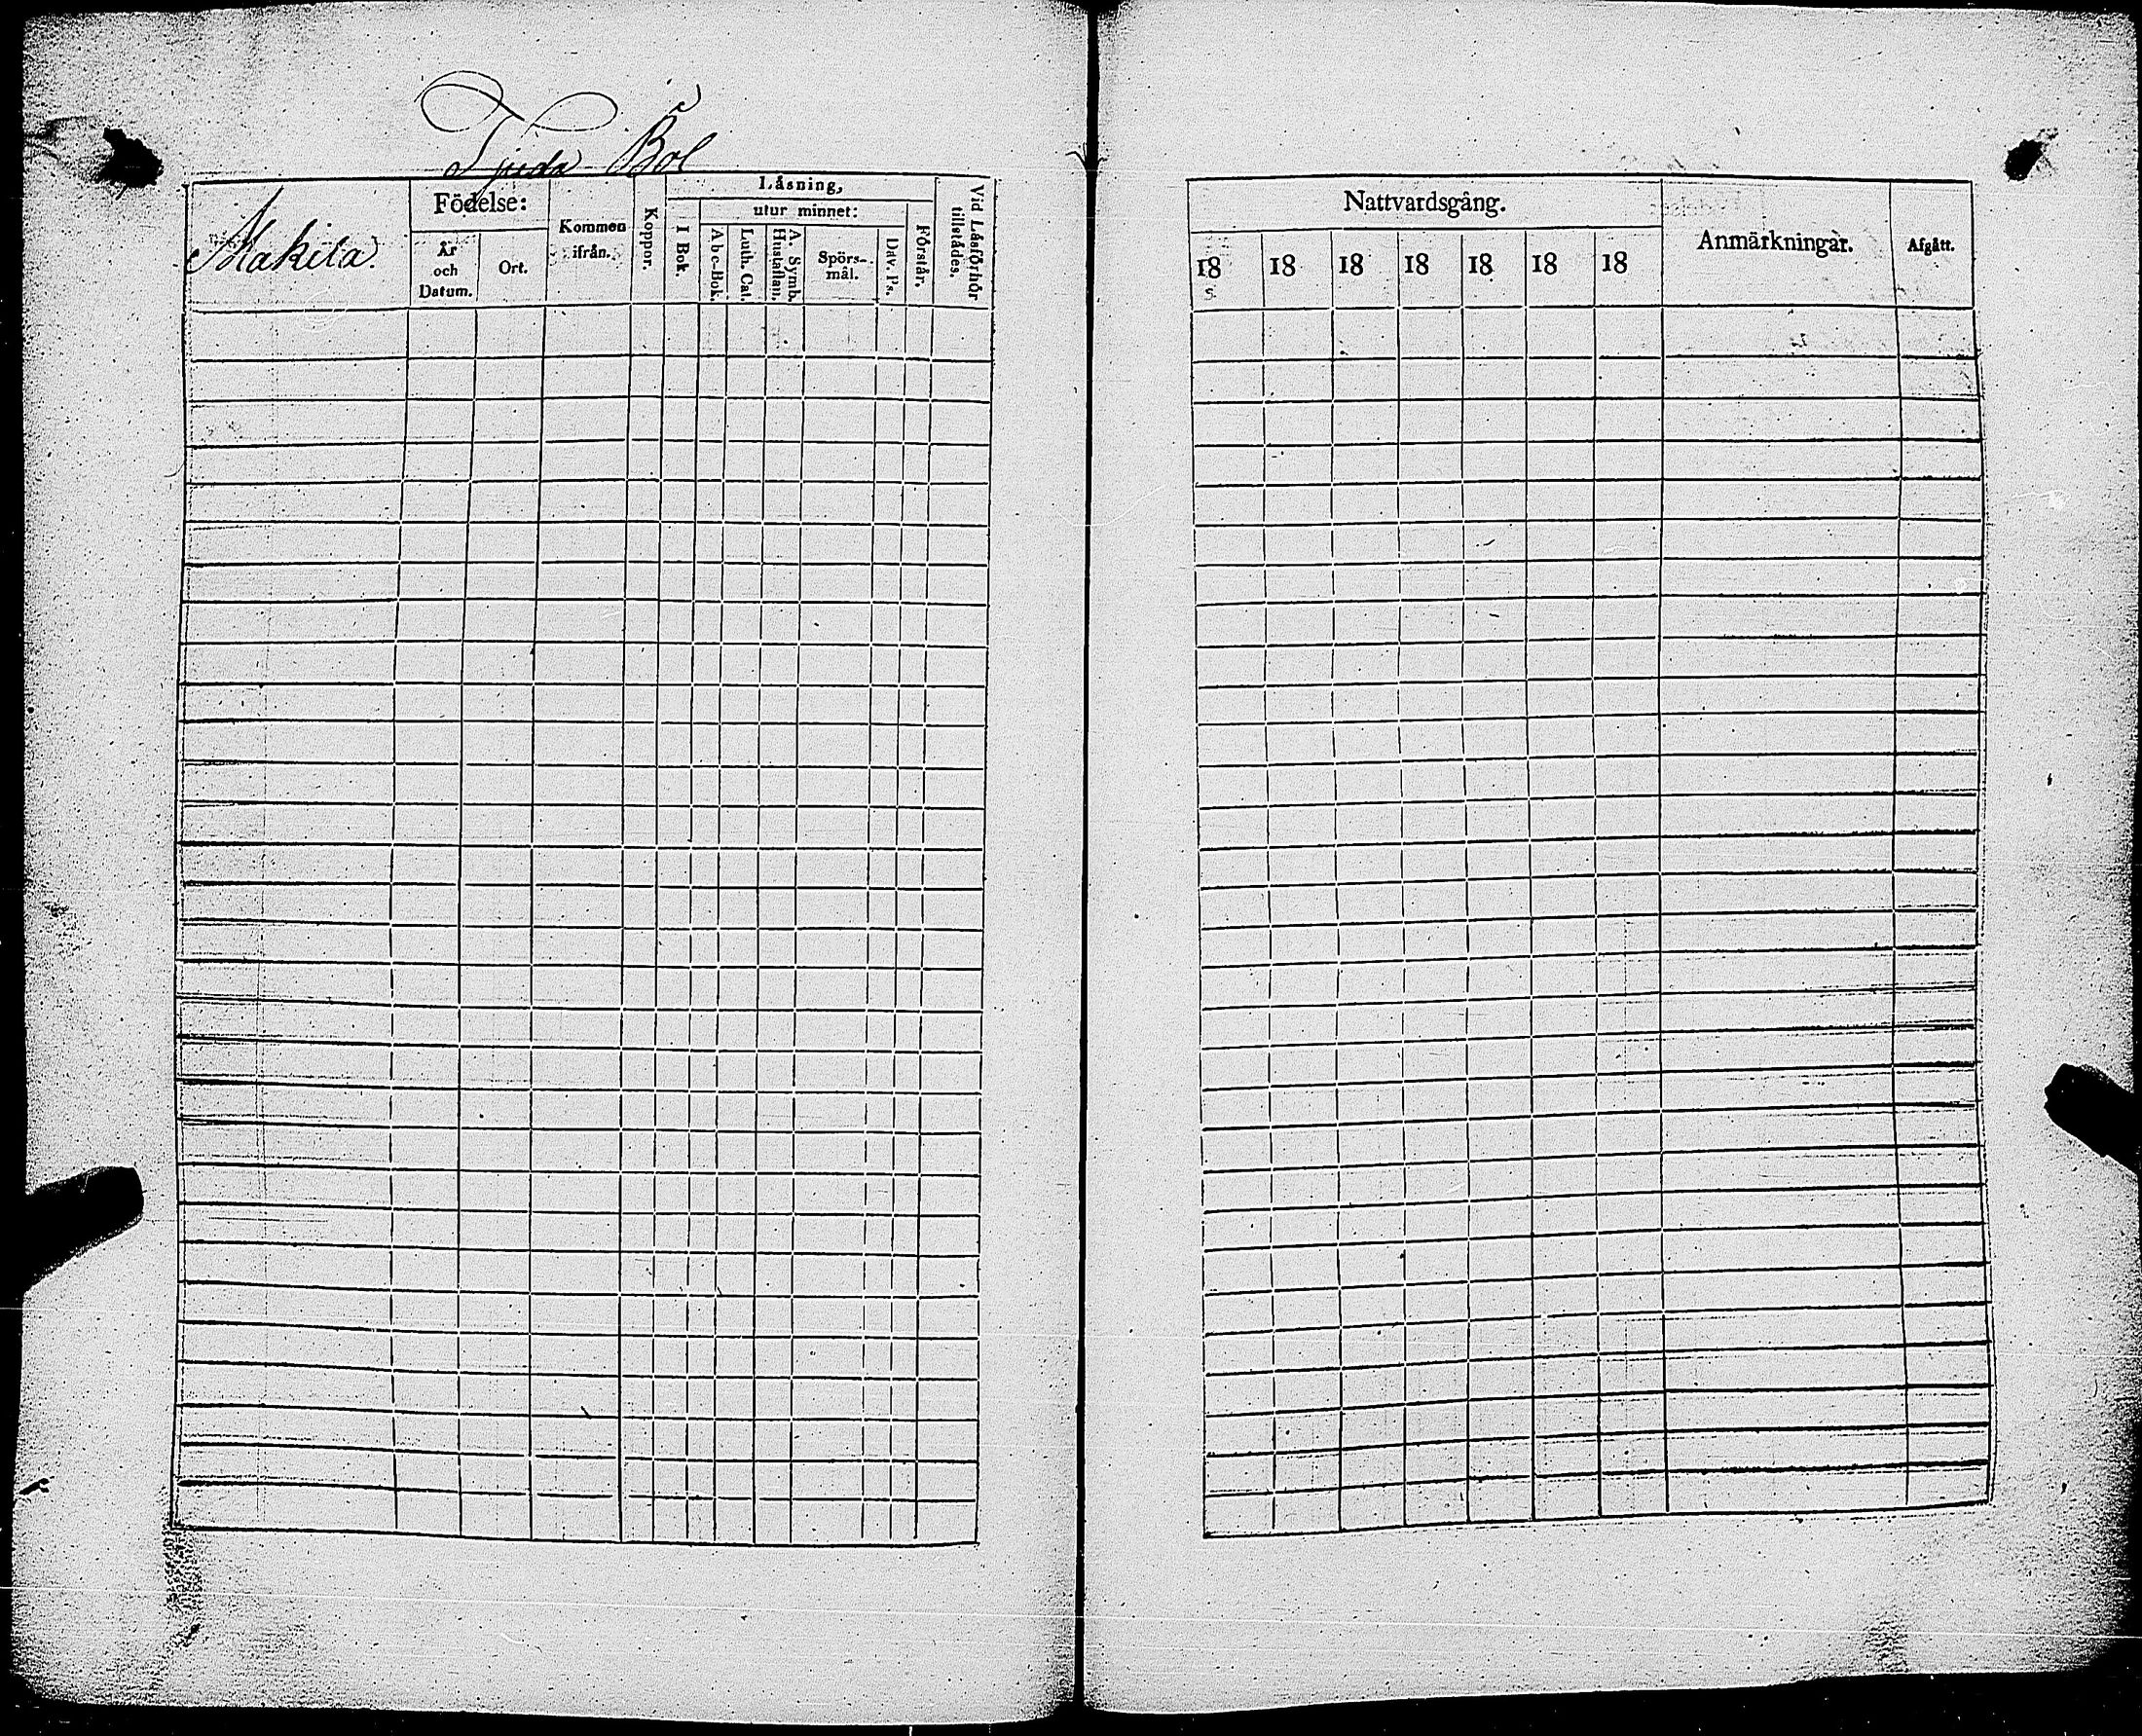 Tjuda Böl
Makila.
Födelse:
År och Datum.
Ort.
Kommen ifrån.
Koppor.
Låsning,
I Bok.
utur minnet:
Abc-Bok.
Luth. Cat.
A. Symb. Hustaflan.
Spörs-mål.
Dav. Ps.
Förstår.
Vid Låsförhör tillstådes.
Nattvardsgång.
18 18 18 18 18 18 18
Anmärkningar.
Afgått.